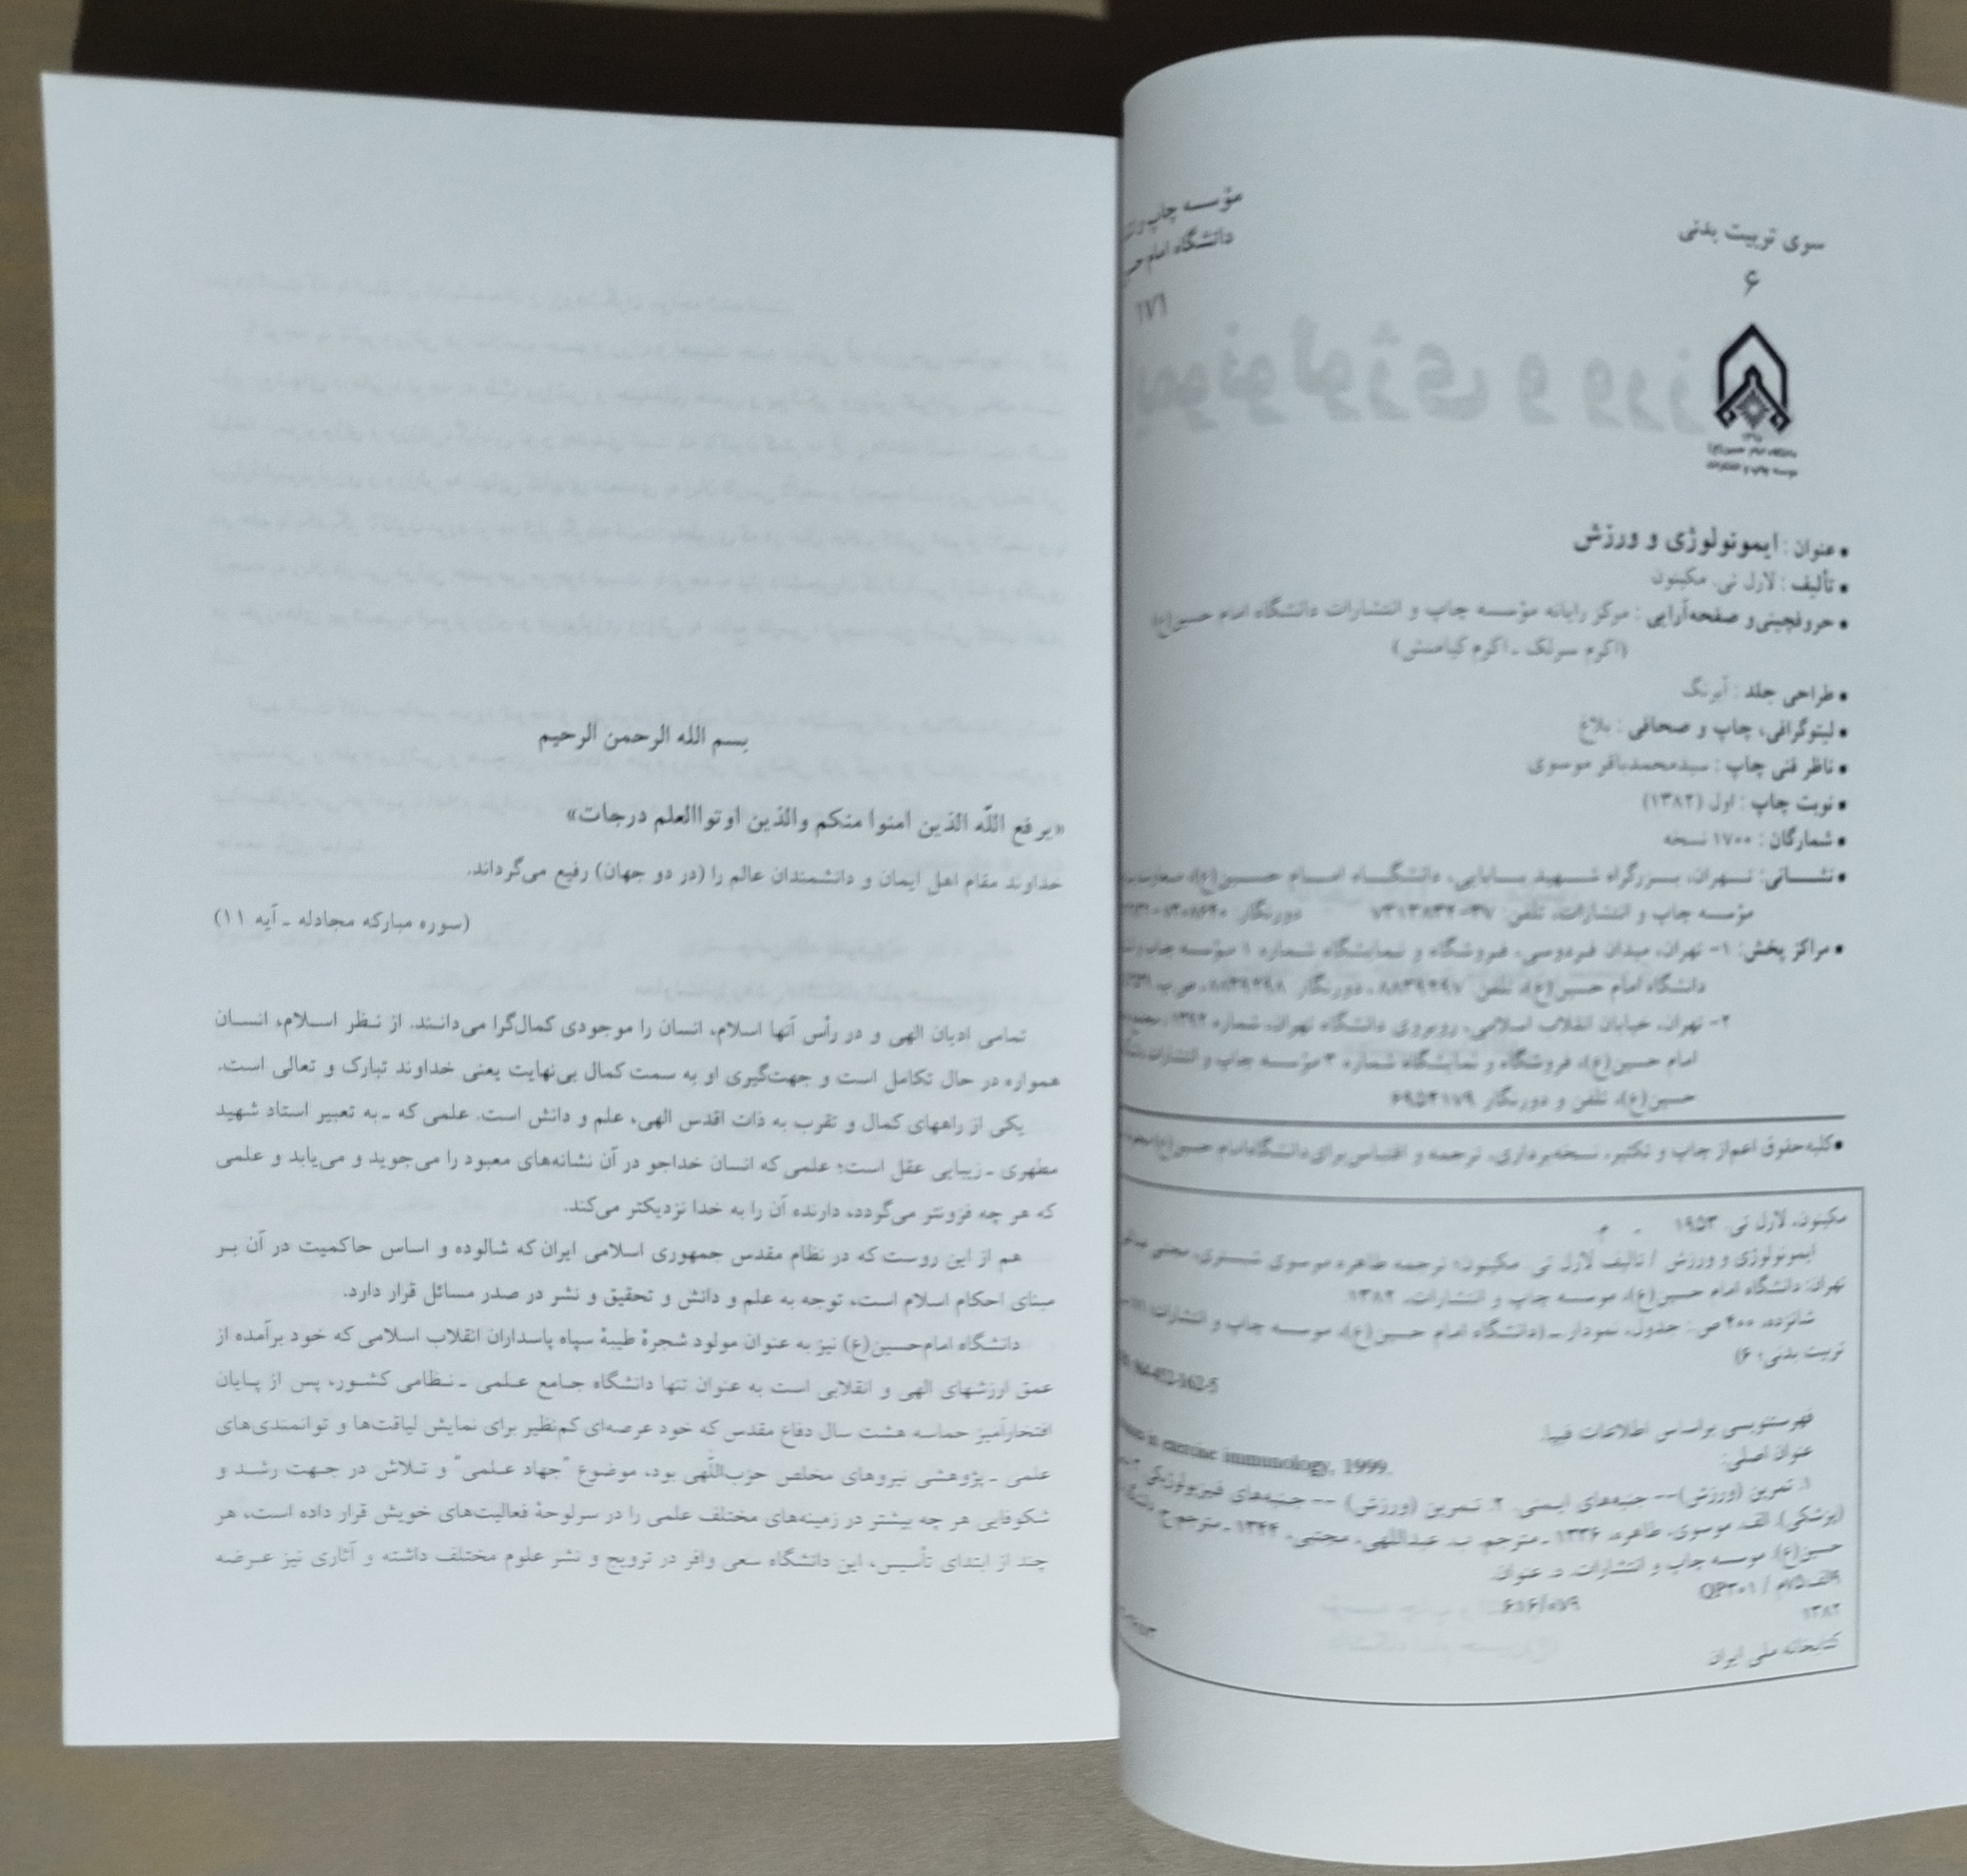 سری تربیت بدنی
۶
مؤسسه چاپ
دانشگاه امام
۱۷۱
دانشگاه امام حسین(ع)
مؤسسه چاپ و انتشارات
• عنوان : ایمونولوژی و ورزش
• تألیف : لارل تی. مکینون
• حروفچینی و صفحه‌آرایی : مرکز رایانه مؤسسه چاپ و انتشارات دانشگاه امام حسین(ع)
(اکرم سرلک ـ اکرم کیامنش)
• طراحی جلد : آبرنگ
• لیتوگرافی، چاپ و صحافی : بلاغ
• ناظر فنی چاپ : سیدمحمدباقر موسوی
• نوبت چاپ : اول (۱۳۸۲)
• شمارگان : ۱۷۰۰ نسخه
• نشـــانی: تـهران، بـزرگراه شـهید بـابایی، دانشگـاه امـام حسـین(ع)،
مؤسسه چاپ و انتشارات، تلفن: دورنگار:
• مراکز پخش: ۱- تهران، میدان فردوسی، فروشگاه و نمایشگاه شماره ۱ مؤسسه چاپ
دانشگاه امام حسین(ع)، تلفن دورنگار
۲- تهران، خیابان انقلاب اسلامی، روبروی دانشگاه تهران، شماره
امام حسین(ع)، فروشگاه و نمایشگاه شماره مؤسسه چاپ و انتشارات
حسین(ع)، تلفن و دورنگار
• کلیه حقوق اعم از چاپ و تکثیر، نسخه‌برداری، ترجمه و اقتباس برای دانشگاه امام حسین(ع)
مکینون، لارل تی. ۱۹۵۳ - م.
ایمونولوژی و ورزش / تألیف لارل تی. مکینون؛ ترجمه طاهره موسوی
تهران: دانشگاه امام حسین(ع)، موسسه چاپ و انتشارات، ۱۳۸۲.
شانزده، ۴۰۰ ص.: جدول، نمودار ـ (دانشگاه امام حسین(ع)، موسسه چاپ و انتشارات؛
تربیت بدنی؛ ۶)
فهرستنویسی براساس اطلاعات فیپا.
عنوان اصلی:
in exercise immunology, 1999.
۱. تمرین (ورزش) -- جنبه‌های ایمنی. ۲. تمرین (ورزش) -- جنبه‌های فیزیولوژیکی
(پزشکی). الف. موسوی، طاهره، ۱۳۳۶ ـ مترجم. ب. عبداللهی، مجتبی، ۱۳۴۴ ـ مترجم. ج.
حسین(ع). موسسه چاپ و انتشارات. د. عنوان.
QP۳۰۱ /
۱۳۸۲
کتابخانه ملی ایران
بسم الله الرحمن الرحیم
«یرفع اللّه الذین امنوا منکم والذین اوتواالعلم درجات»
خداوند مقام اهل ایمان و دانشمندان عالم را (در دو جهان) رفیع می‌گرداند.
(سوره مبارکه مجادله ـ آیه ۱۱)
تمامی ادیان الهی و در رأس آنها اسلام، انسان را موجودی کمال‌گرا می‌دانـند. از نـظر اسـلام، انسـان
همواره در حال تکامل است و جهت‌گیری او به سمت کمال بی‌نهایت یعنی خداوند تبارک و تعالی است.
یکی از راههای کمال و تقرب به ذات اقدس الهی، علم و دانش است. علمی که ـ به تعبیر استاد شهید
مطهری ـ زیبایی عقل است؛ علمی که انسان خداجو در آن نشانه‌های معبود را می‌جوید و می‌یابد و علمی
که هر چه فزونتر می‌گردد، دارنده آن را به خدا نزدیکتر می‌کند.
هم از این روست که در نظام مقدس جمهوری اسلامی ایران که شالوده و اساس حاکمیت در آن بـر
مبنای احکام اسلام است، توجه به علم و دانش و تحقیق و نشر در صدر مسائل قرار دارد.
دانشگاه امام‌حسین(ع) نیز به عنوان مولود شجرهٔ طیبهٔ سپاه پاسداران انقلاب اسلامی که خود برآمده از
عمق ارزشهای الهی و انقلابی است به عنوان تنها دانشگاه جـامع عـلمی ـ نـظامی کشـور، پس از پـایان
افتخارآمیز حماسه هشت سال دفاع مقدس که خود عرصه‌ای کم‌نظیر برای نمایش لیاقت‌ها و توانمندی‌های
علمی ـ پژوهشی نیروهای مخلص حزب‌اللّهی بود، موضوع "جهاد عـلمی" و تـلاش در جـهت رشـد و
شکوفایی هر چه بیشتر در زمینه‌های مختلف علمی را در سرلوحهٔ فعالیت‌های خویش قرار داده است، هر
چند از ابتدای تأسیس، این دانشگاه سعی وافر در ترویج و نشر علوم مختلف داشته و آثاری نیز عـرضه